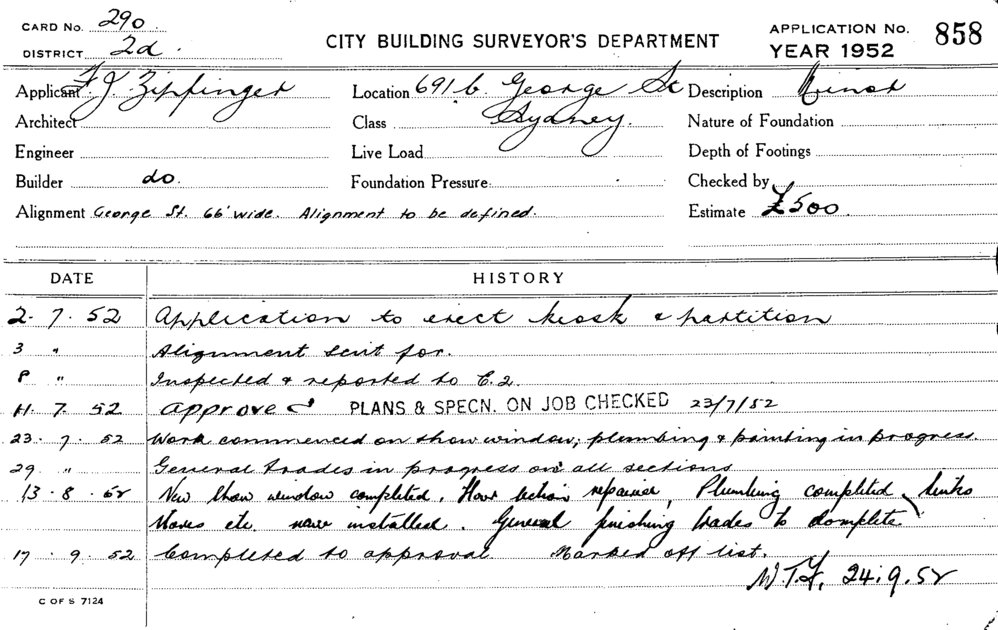 CARD No. 290. CITY BUILDING SURVEYOR'S DEPARTMENT APPLICATION No. 858
DISTRICT 2d. YEAR 1952
Applicant F J Zipfinger Location 691 b. George St Description Minor
Architect Class Sydney. Nature of Foundation
Engineer Live Load Depth of Footings
Builder do. Foundation Pressure Checked by
Alignment George St. 66' wide. Alignment to be defined. Estimate £500.
DATE HISTORY
2. 7. 52 Application to erect kiosk & partition
3 " Alignment sent for.
8 " Inspected & reported to E.2.
11. 7. 52 Approved PLANS & SPECN. ON JOB CHECKED 23/7/52
23. 7. 52 Work commenced on show window; plumbing & painting in progress.
29. " General trades in progress on all sections
13. 8. 52 New show window completed. Floor section repaired, Plumbing completed, sinks
stoves etc. now installed. General finishing trades to complete
17. 9. 52 Completed to approval. Marked off list.
24.9.52
C OF S 7124